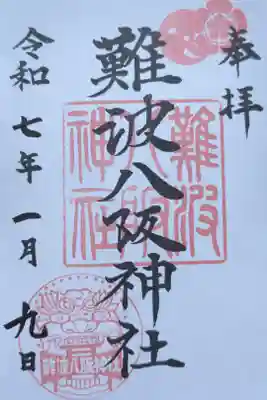 奉拝
難波八阪神社
難波
八阪
神社
令和七年一月九日